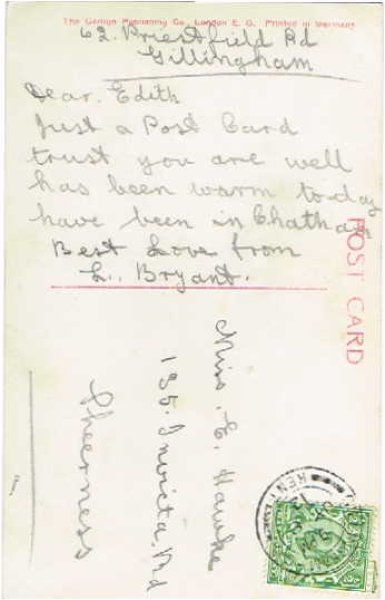 The German Publishing Co., London E.C. Printed in Germany
62. Priestfield Rd
Gillingham
Dear. Edith
Just a Post Card
trust you are well
has been warm to-day
have been in Chatham
Best Love from
L. Bryant.
POST CARD
Miss. E. Hawke
135. Invicta. Rd
Sheerness
KENT